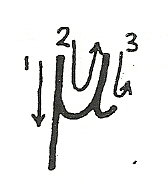 1 2 3
μ